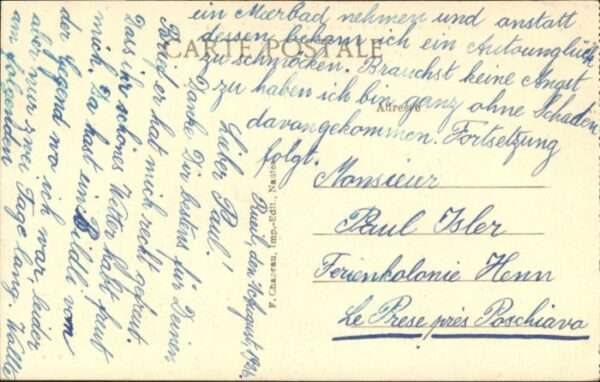 CARTE POSTALE
Adresse
F. Chapeau, Imp.-Edit., Nantes
den 10. August, 19
Lieber Paul!
Danke Dir bestens für Deinen
Brief er hat mich recht gefreut.
Dass ihr schönes Wetter habt freut
mich. Da hast ein Bildli vom
der Gegend wo ich war, leider
aber nur zwei Tage lang. Wollte
am folgenden
ein Meerbad nehmen und anstatt
dessen bekam ich ein Autounglück
zu schmöcken. Brauchst keine Angst
zu haben ich bin ganz ohne Schaden
davongekommen. Fortsetzung
folgt.
Monsieur
Paul Isler
Ferienkolonie Henn
Le Prese près Poschiavo